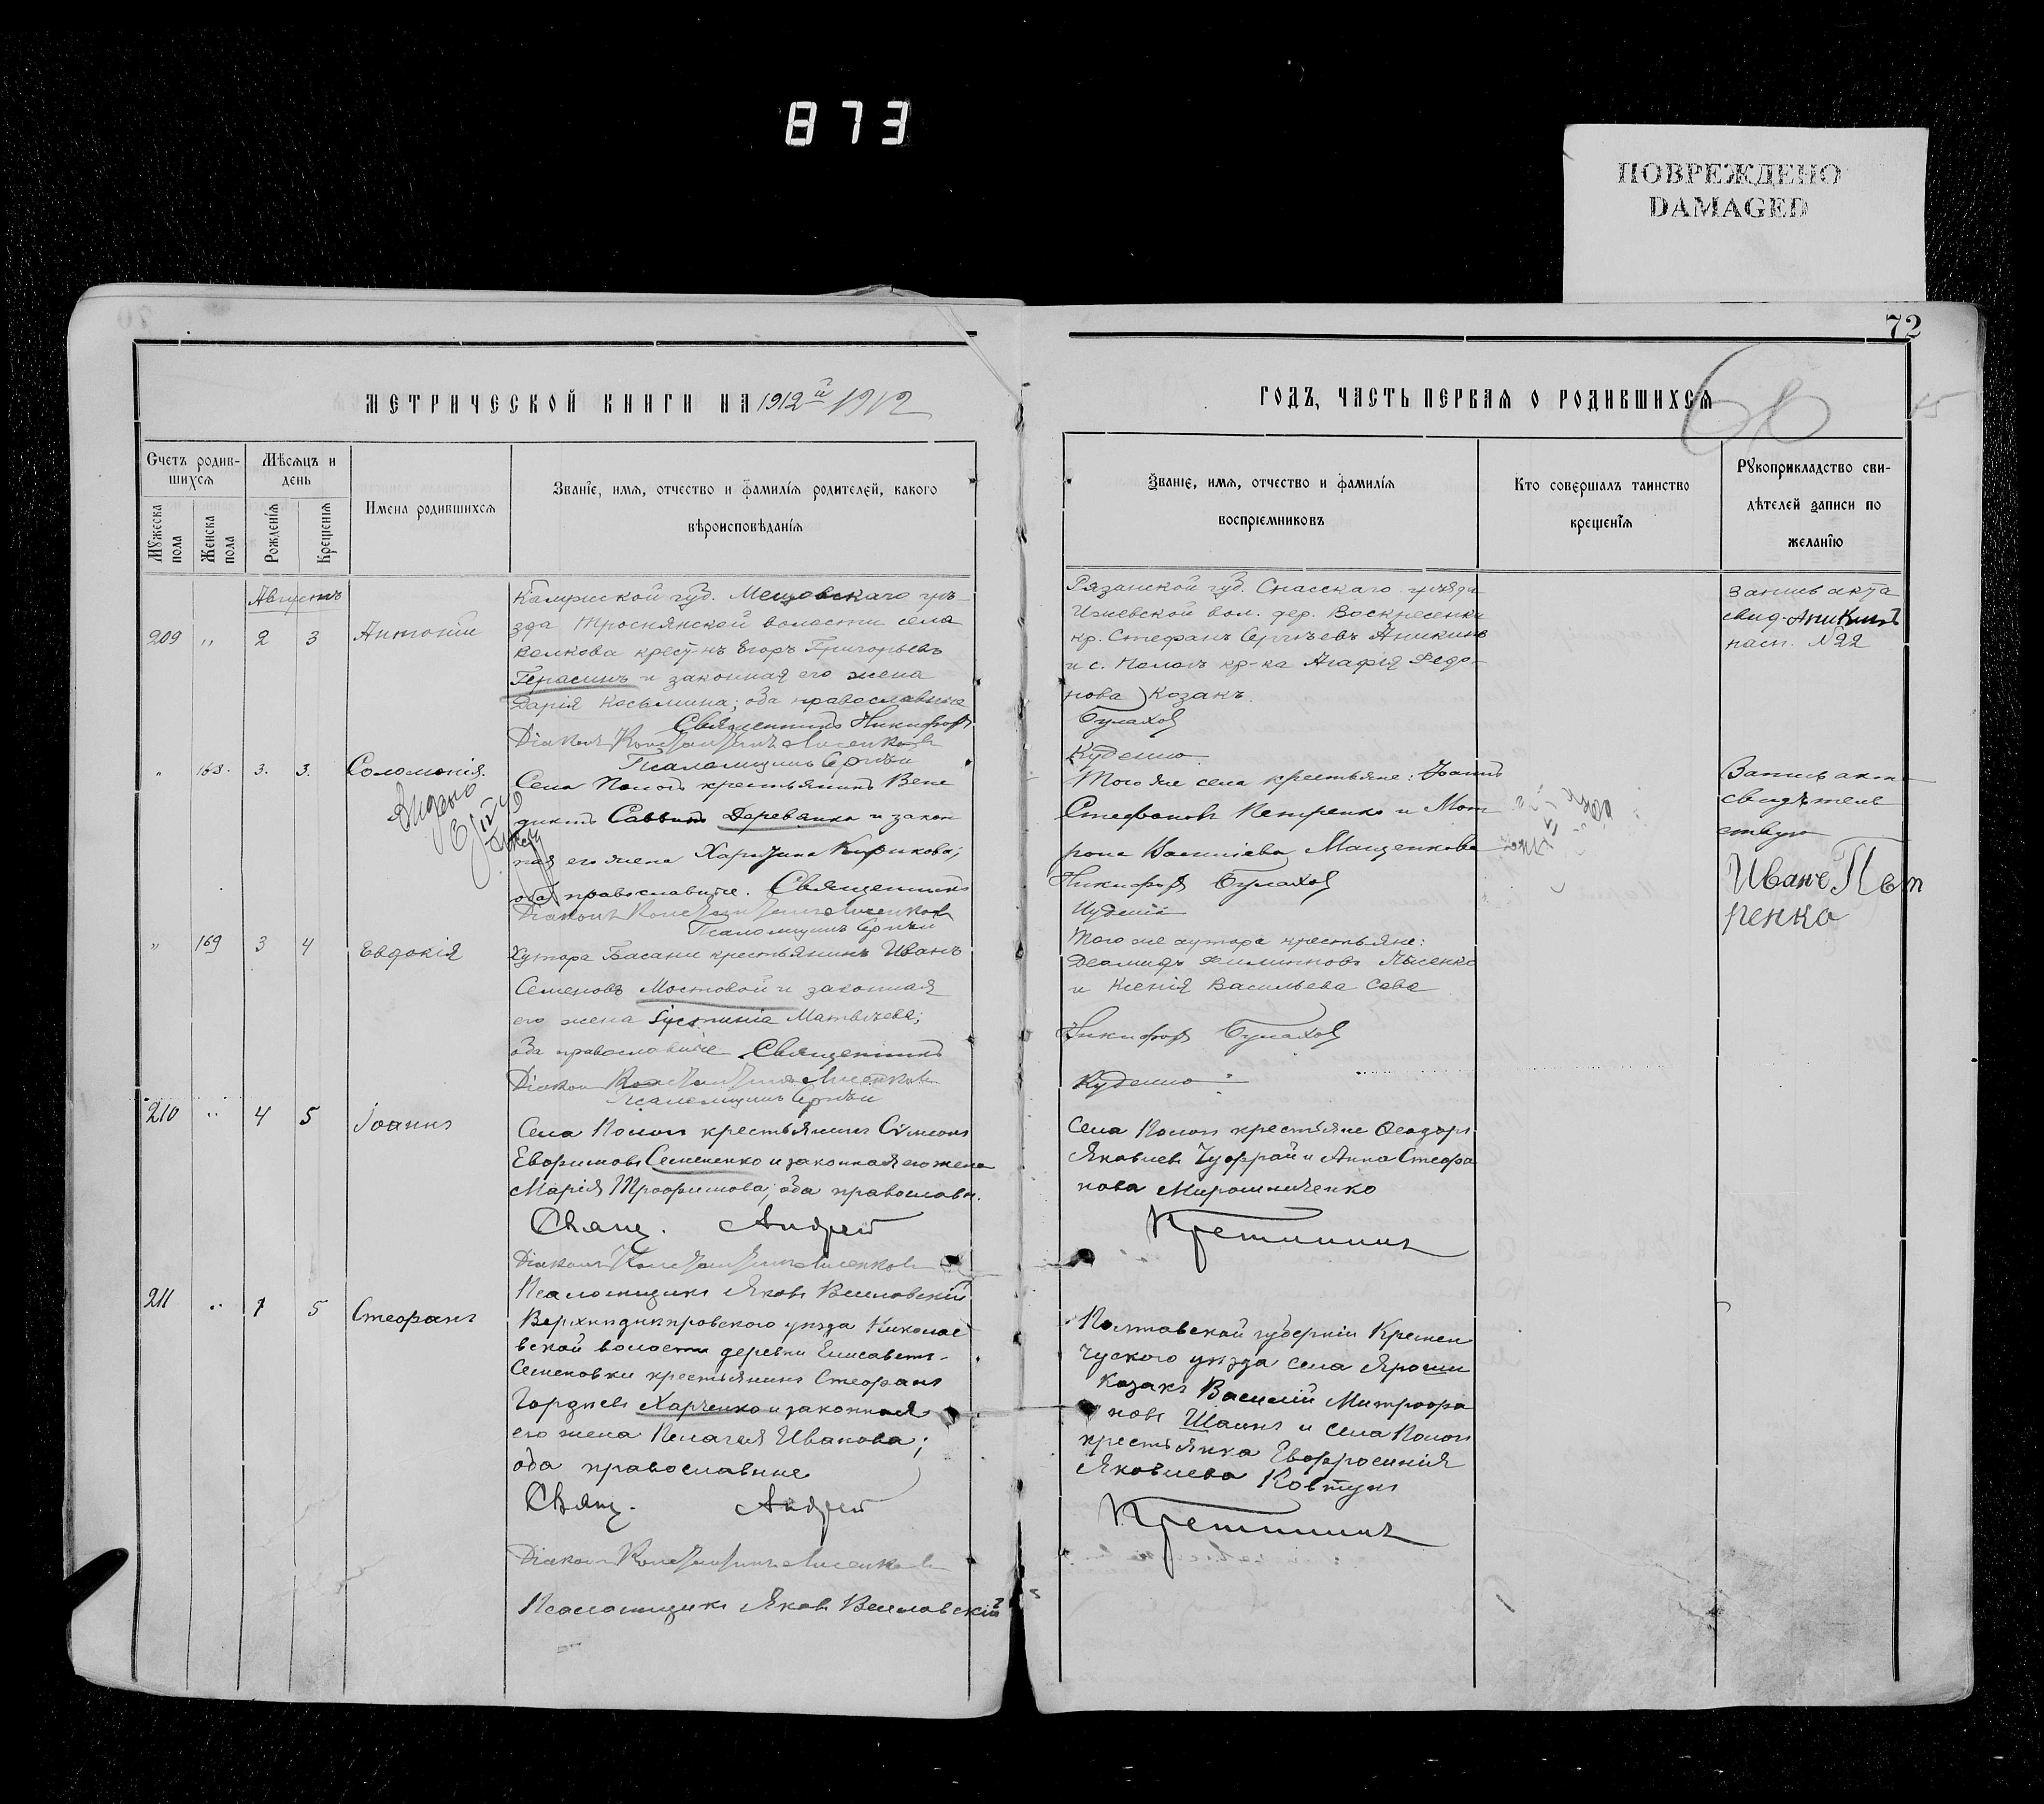 873
ПОВРЕЖДЕНО
DAMAGED
72
МЕТРИЧЕСКОЙ КНИГИ НА 1912й 1912
ГОДЪ, ЧАСТЬ ПЕРВАЯ О РОДИВШИХСЯ
Счетъ родив-
шихся
Мѣсяцъ и
день
Мужеска
пола
Женска
пола
Рожденія
Крещенія
Имена родившихся
Званіе, имя, отчество и фамилія родителей, какого
вѣроисповѣданія
Званіе, имя, отчество и фамилія
воспріемниковъ
Кто совершалъ таинство
крещенія
Рукоприкладство сви-
дѣтелей записи по
желанію
Августъ
209 " 2 3 Антоній
губ. Мещовскаго уѣ-
зда волости села
Волкова крест-нъ Егоръ Григорьевъ
Герасинъ и законная его жена
Дарія Косьмина; оба православные
Священникъ Никифоръ
Діаконъ Константинъ Лисенковъ
Псаломщикъ
Рязанской губ. Спасскаго уѣзда
вол. дер. Воскресенки
кр. Стефанъ Сергѣевъ Аникинъ
и с. Пологъ кр-ка Агафія Федо-
рова Козакъ
Булахов
запись акта
свид. Аникинъ
пасп. №22
" 168. 3. 3. Соломонія.
Села Пологъ крестьянинъ Вене
диктъ Саввинъ Деревянко и закон
ная его жена Харитина
оба православные. Священникъ
Діаконъ Константинъ Лисенковъ
Псаломщикъ
Того же села крестьяне: Іоаннъ
Стефановъ Петренко и Мот
рона Василіева Мащенкова
Никифоръ Булахов
Запись акта
свидѣтель
ствую
Иванъ Пет
ренко
" 169 3 4 Евдокія
Хутора Басани крестьянинъ Иванъ
Семеновъ Мостовой и законная
его жена Іустинія Матвѣева;
оба православные Священникъ
Діаконъ Константинъ Лисенковъ
Псаломщикъ
Того же хутора крестьяне:
Лысенко
и Ксенія Васильева Сова
Никифоръ Булахов
210 " 4 5 Іоаннъ
Села Пологъ крестьянинъ Сѷмеонъ
Евфимовъ Семененко и законная его жена
Марія Трофимова; оба православн.
Свящ. Андрей
Діаконъ Константинъ Лисенковъ
Псаломщикъ Яковъ
Села Пологъ крестьяне Ѳеодоръ
Яковлевъ и Анна Стефа
нова Мирошниченко
211 " 5 Стефанъ
Верхнеднѣпровского уѣзда Николае
вской волости деревни Елисавето-
Семеновки крестьянинъ Стефанъ
Гордѣевъ Харченко и законная
его жена Пелагея Иванова;
оба православные
Свящ. Андрей
Діаконъ Константинъ Лисенковъ
Псаломщикъ Яковъ
Полтавской губерніи Кремен
чуского уѣзда села
Козакъ Василій Митрофа
новъ и села Пологъ
крестьянка Евфросинія
Яковлева Ковтунъ